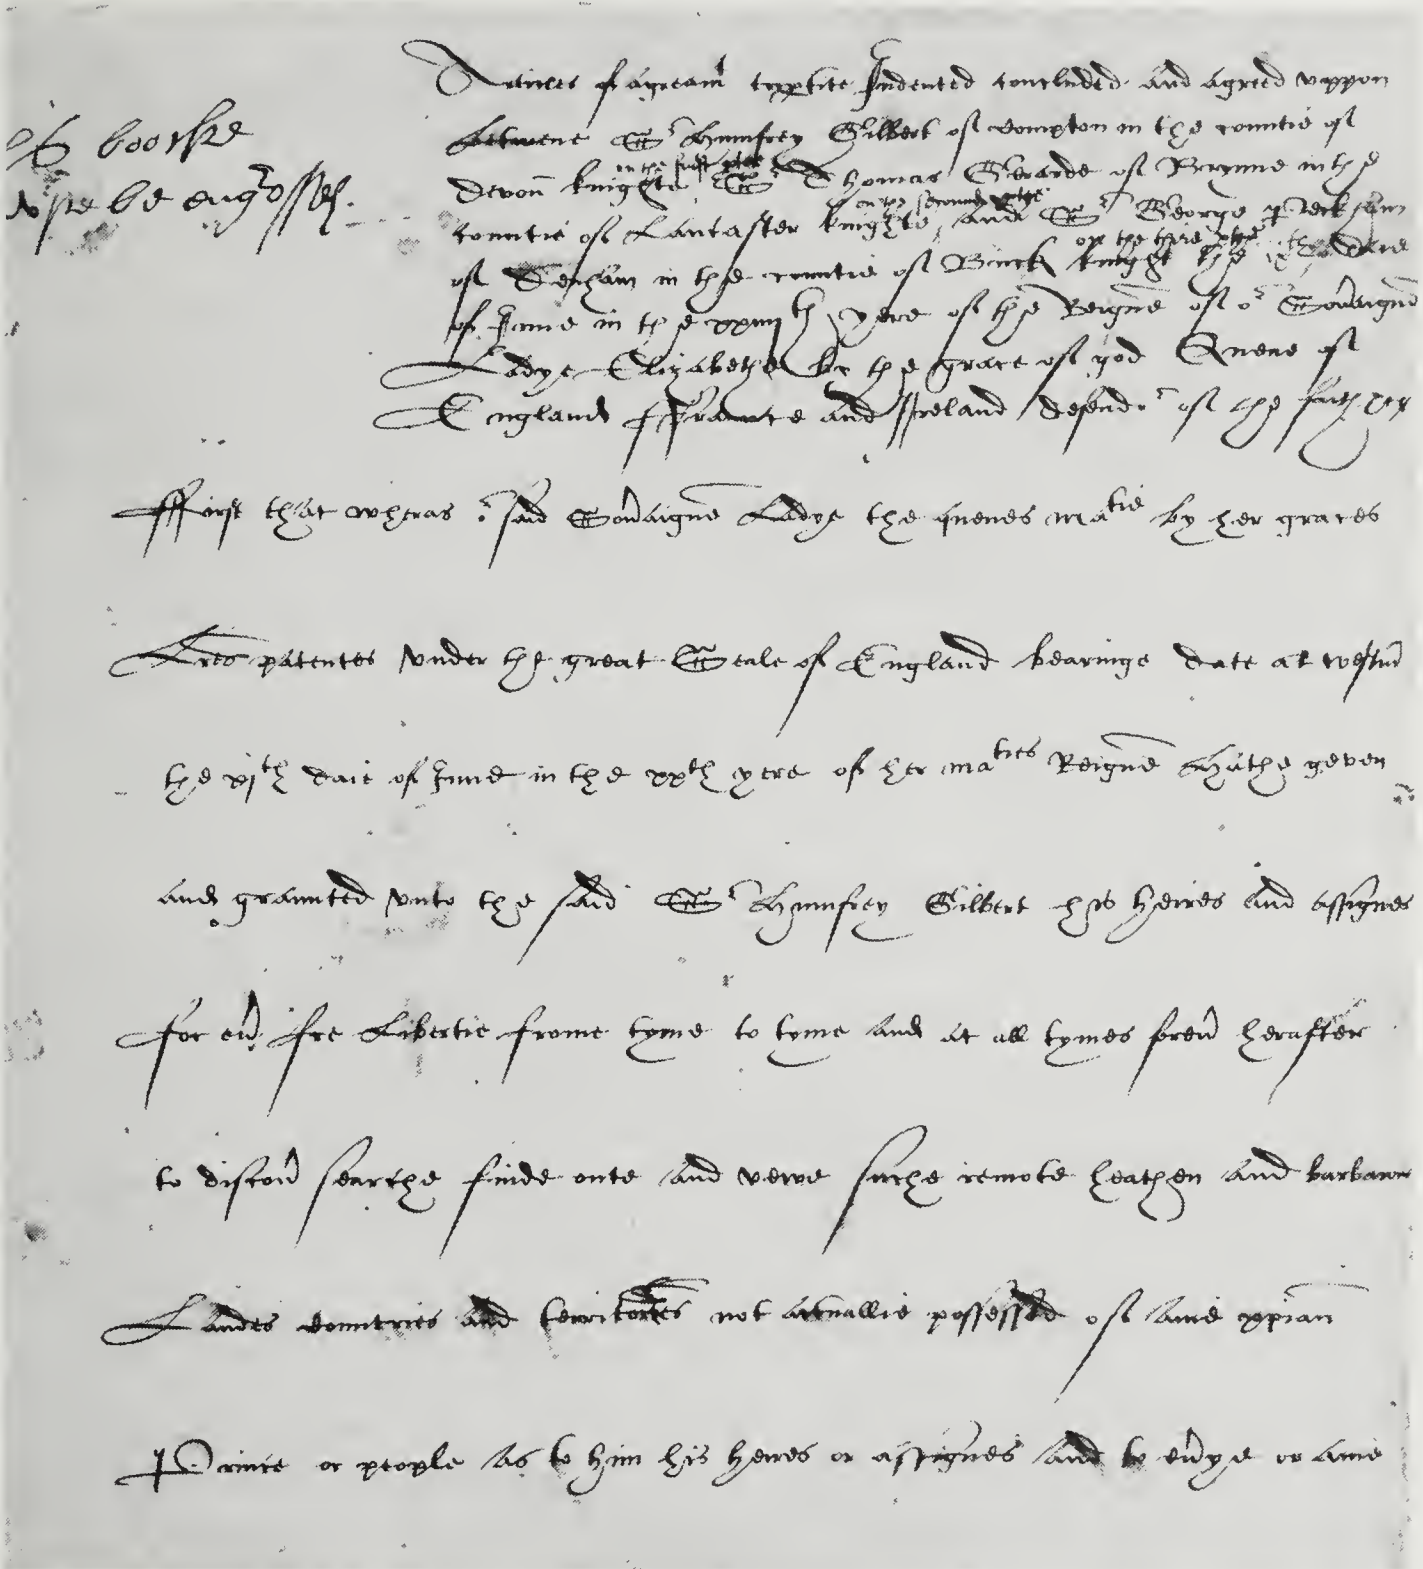 boocke
be engrossed.
Articles of agreamt tryptite Indented concluded and agreed vppon
betwene Sr Humfrey Gilbert of Compton in the countie of
Devon knighte on the first ptie Sr Thomas Gerarde of Brynne in the
countie of Lancaster knighte on the seconde ptie and Sr George Peckham
of Denham in the countie of Buck knight on the third ptie the daie
of June in the xxiiijth yere of the Reigne of or Soūaigne
Ladye Elizabethe by the grace of god Quene of
England ffraunce and Ireland defendr of the faith
ffirst that wheras or said Soūaigne Ladye the quenes matie by her graces
Lres patentes vnder the great Seale of England bearinge date at westm
the xjth daie of June in the xxth yere of her maties Reigne Hathe geven
and graunted vnto the said Sr Humfrey Gilbert his heires and assignes
for eū fre Libertie frome tyme to tyme and at all tymes foreū herafter
to discoū searche finde oute and vewe suche remote heathen and barbarous
Landes countries and territories not actuallie possessed of anie xpian
Prince or people as to him his heires or assignes and to eūye or anie